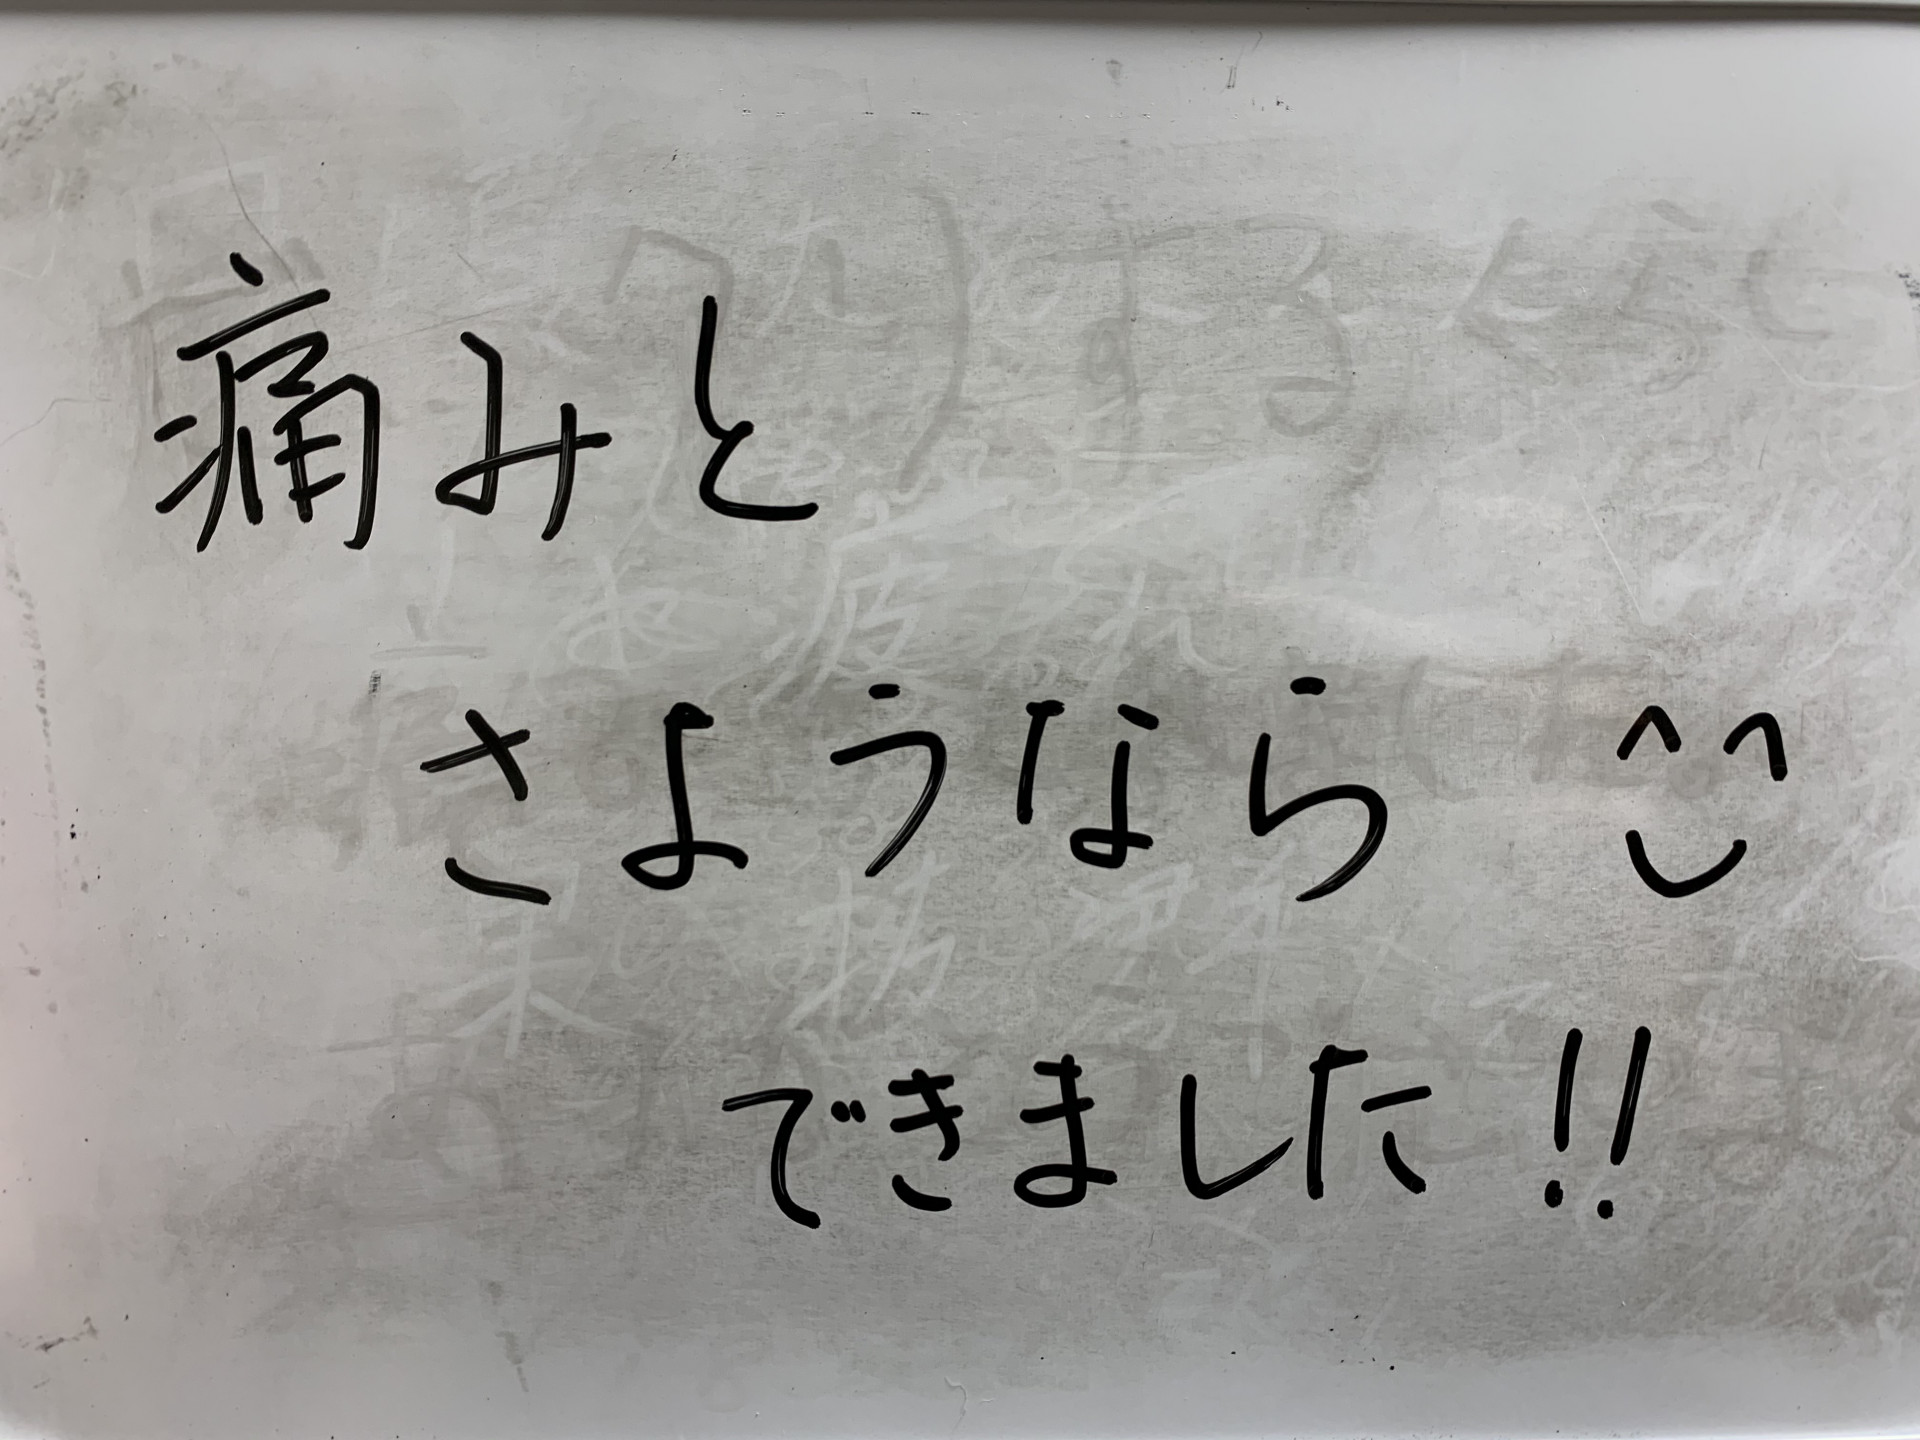 痛みと
さようなら ^^
できました!!